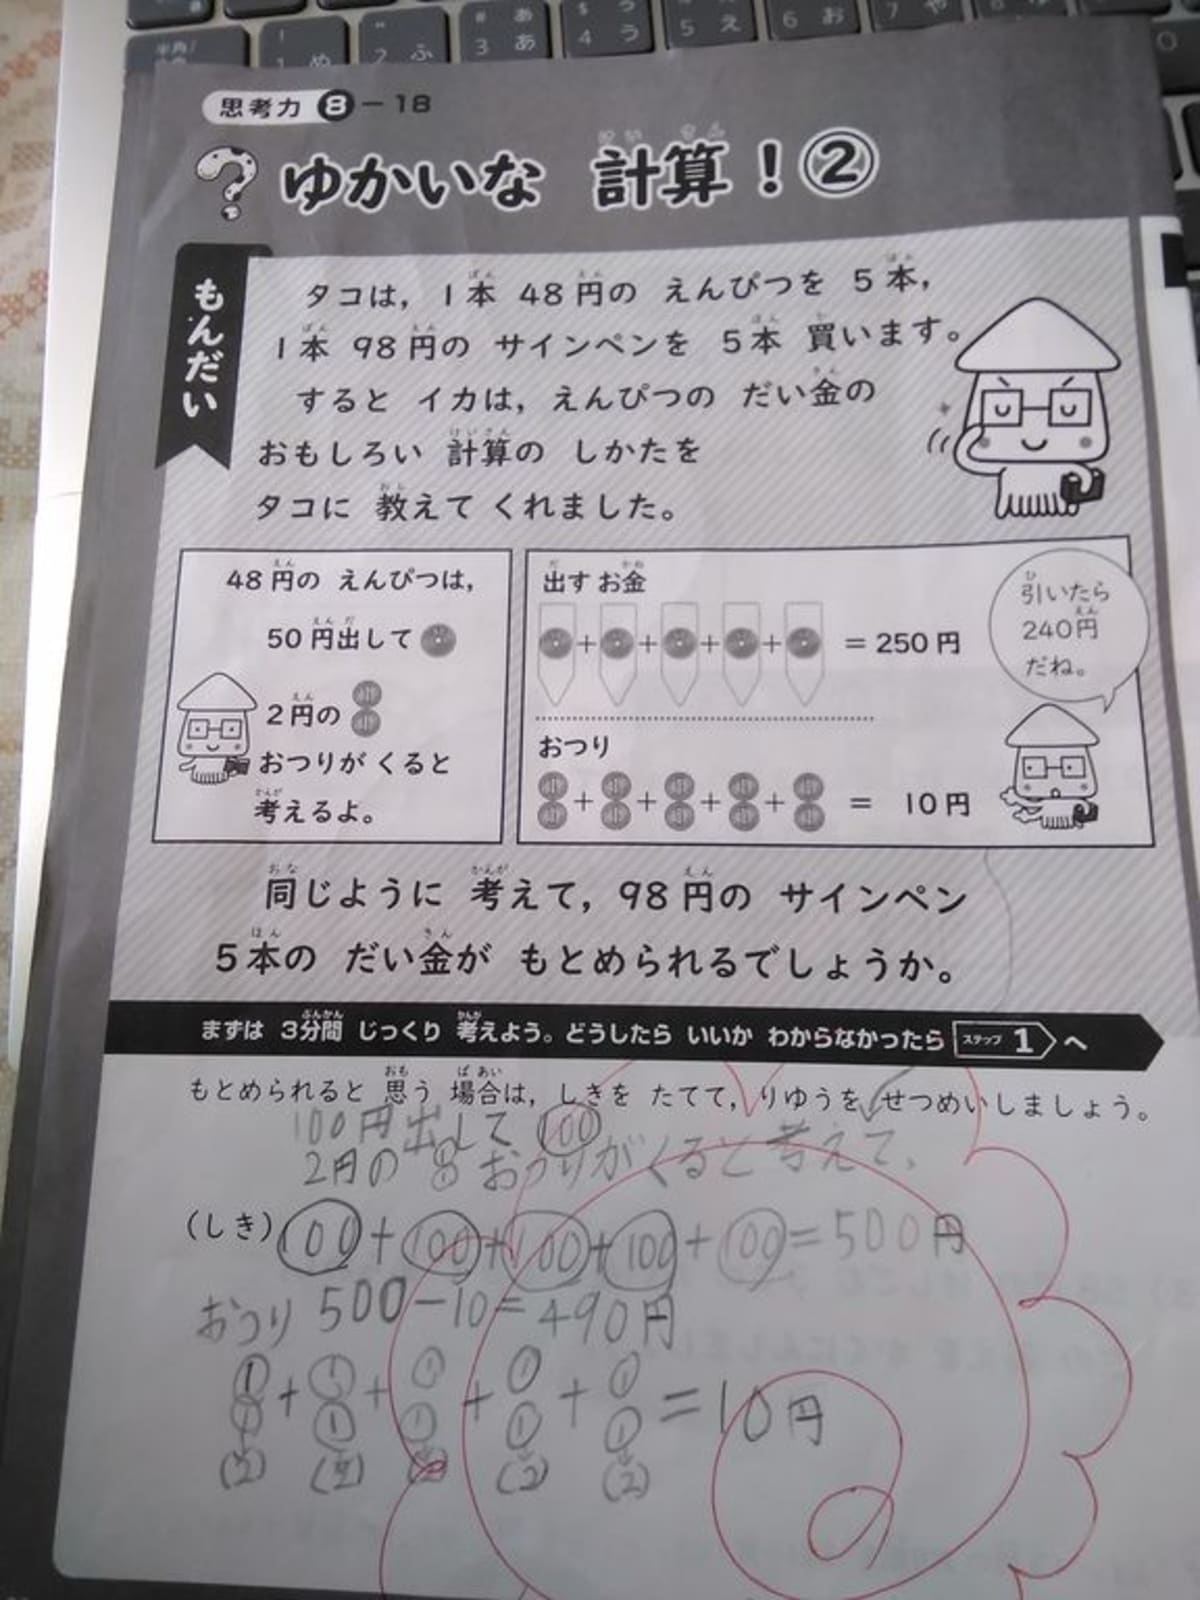 半角/
! 1 ぬ
" 2 ふ
# あ 3 あ
$ う 4 う
5 え
6 お
7 や
思考力 8 − 18
? ゆかいな 計算!②
けい さん
もんだい
タコは, 1本 48円の えんぴつを 5本,
1本 98円の サインペンを 5本 買います。
すると イカは, えんぴつの だい金の
おもしろい 計算の しかたを
タコに 教えて くれました。
48円の えんぴつは,
50円出して
2円の
おつりが くると
考えるよ。
出す お金
+ + + + = 250円
引いたら
240円
だね。
おつり
+ + + + = 10円
同じように 考えて, 98円の サインペン
5本の だい金が もとめられるでしょうか。
まずは 3分間 じっくり 考えよう。どうしたら いいか わからなかったら ステップ 1 へ
もとめられると 思う 場合は, しきを たてて, りゆうを せつめいしましょう。
100円出して 100
2円の ①① おつりがくると考えて、
(しき) 100+100+100+100+100=500円
おつり 500−10=490円
①①+①①+①①+①①+①①=10円
(2) (2) (2) (2) (2)